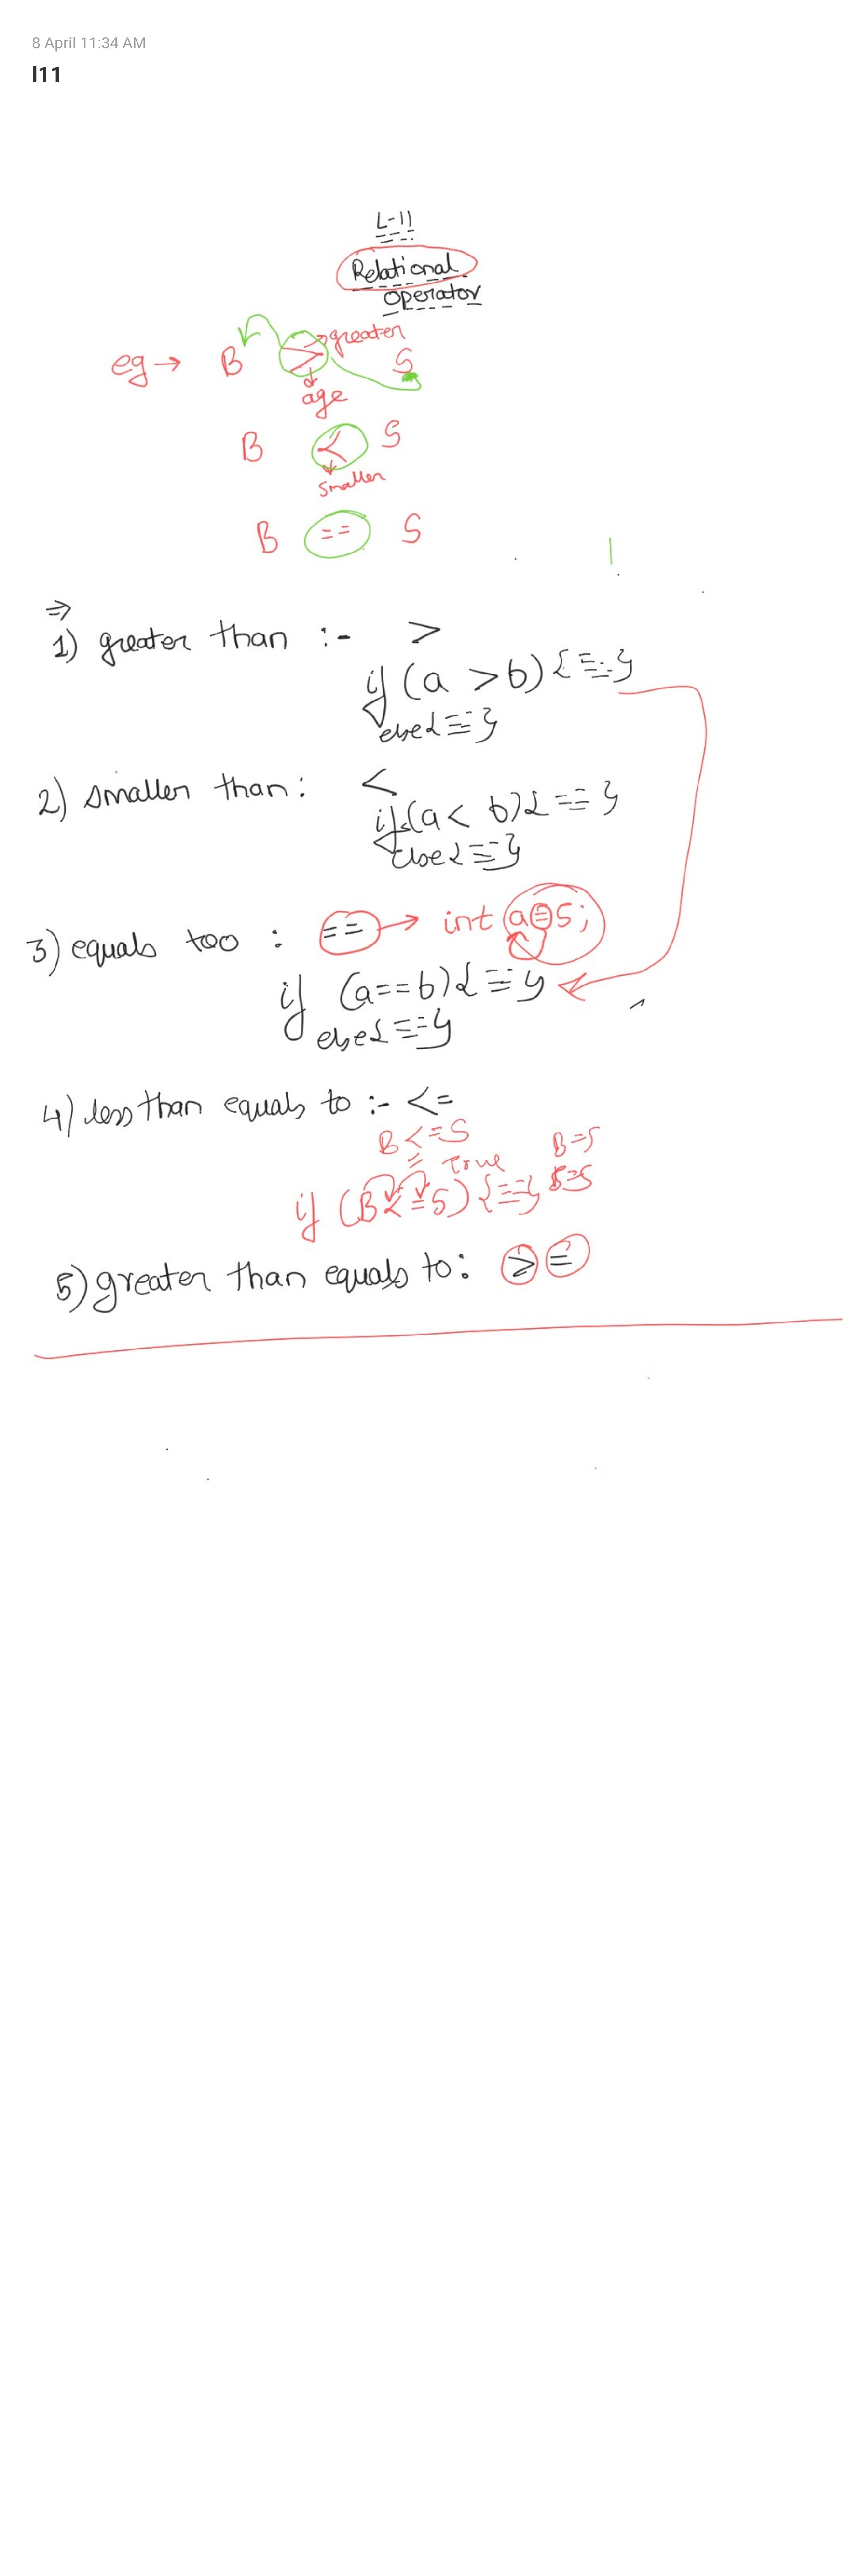 8 April 11:34 AM
l11
L-11
Relational
operator
eg → B > S
greater
age
B < S
smaller
B == S
⇒
1) greater than :- >
if (a > b) { }
else { }
2) smaller than : <
if (a < b) { }
else { }
3) equals too : == → int a=5;
if (a==b) { }
else { }
4) less than equals to :- <=
B <= S
True
B=5
S=5
if (B <= S) { }
5) greater than equals to : >=